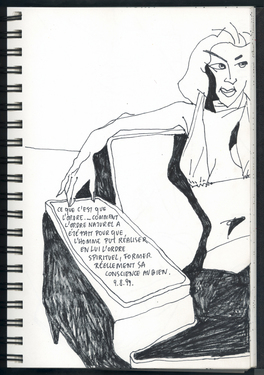 CE QUE C'EST QUE
L'ORDRE... COMMENT
L'ORDRE NATUREL A
ÉTÉ FAIT POUR QUE,
L'HOMME PUT RÉALISER
EN LUI L'ORDRE
SPIRITUEL, FORMER
RÉELLEMENT SA
CONSCIENCE AU BIEN.
9.8.99.